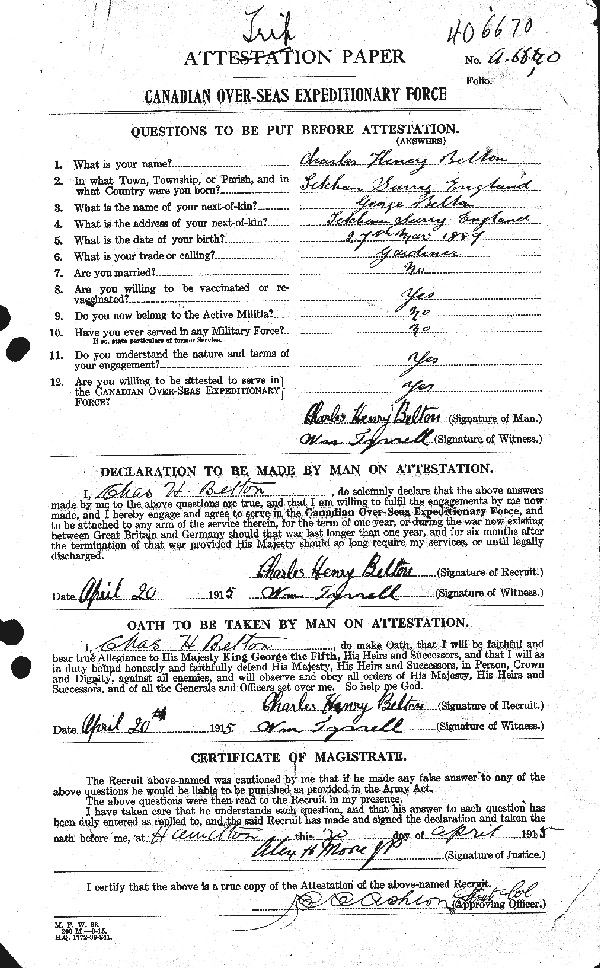 406670
ATTESTATION PAPER
No. A.
Folio.
CANADIAN OVER-SEAS EXPEDITIONARY FORCE
QUESTIONS TO BE PUT BEFORE ATTESTATION.
(ANSWERS)
1. What is your name? Charles Henry Belton
2. In what Town, Township, or Parish, and in
what Country were you born? Surry England
3. What is the name of your next-of-kin? George Belton
4. What is the address of your next-of-kin? Surry England
5. What is the date of your birth? Mar 1889
6. What is your trade or calling? Gardiner
7. Are you married? No
8. Are you willing to be vaccinated or re-
vaccinated? Yes
9. Do you now belong to the Active Militia? no
10. Have you ever served in any Military Force? no
If so, state particulars of former Service.
11. Do you understand the nature and terms of
your engagement? Yes
12. Are you willing to be attested to serve in
the CANADIAN OVER-SEAS EXPEDITIONARY
FORCE? Yes
Charles Henry Belton (Signature of Man.)
Wm Tyrrell (Signature of Witness.)
DECLARATION TO BE MADE BY MAN ON ATTESTATION.
I, Chas H Belton, do solemnly declare that the above answers
made by me to the above questions are true, and that I am willing to fulfil the engagements by me now
made, and I hereby engage and agree to serve in the Canadian Over-Seas Expeditionary Force, and
to be attached to any arm of the service therein, for the term of one year, or during the war now existing
between Great Britain and Germany should that war last longer than one year, and for six months after
the termination of that war provided His Majesty should so long require my services, or until legally
discharged.
Charles Henry Belton (Signature of Recruit.)
Date April 20 1915 Wm Tyrrell (Signature of Witness.)
OATH TO BE TAKEN BY MAN ON ATTESTATION.
I, Chas H Belton, do make Oath, that I will be faithful and
bear true Allegiance to His Majesty King George the Fifth, His Heirs and Successors, and that I will as
in duty bound honestly and faithfully defend His Majesty, His Heirs and Successors, in Person, Crown
and Dignity, against all enemies, and will observe and obey all orders of His Majesty, His Heirs and
Successors, and of all the Generals and Officers set over me. So help me God.
Charles Henry Belton (Signature of Recruit.)
Date April 20th 1915 Wm Tyrrell (Signature of Witness.)
CERTIFICATE OF MAGISTRATE.
The Recruit above-named was cautioned by me that if he made any false answer to any of the
above questions he would be liable to be punished as provided in the Army Act.
The above questions were then read to the Recruit in my presence.
I have taken care that he understands each question, and that his answer to each question has
been duly entered as replied to, and the said Recruit has made and signed the declaration and taken the
oath before me, at Hamilton this 20 day of April 1915
Alex H Moore JP (Signature of Justice.)
I certify that the above is a true copy of the Attestation of the above-named Recruit.
Ashton Lieut Col (Approving Officer.)
M. F. W. 23.